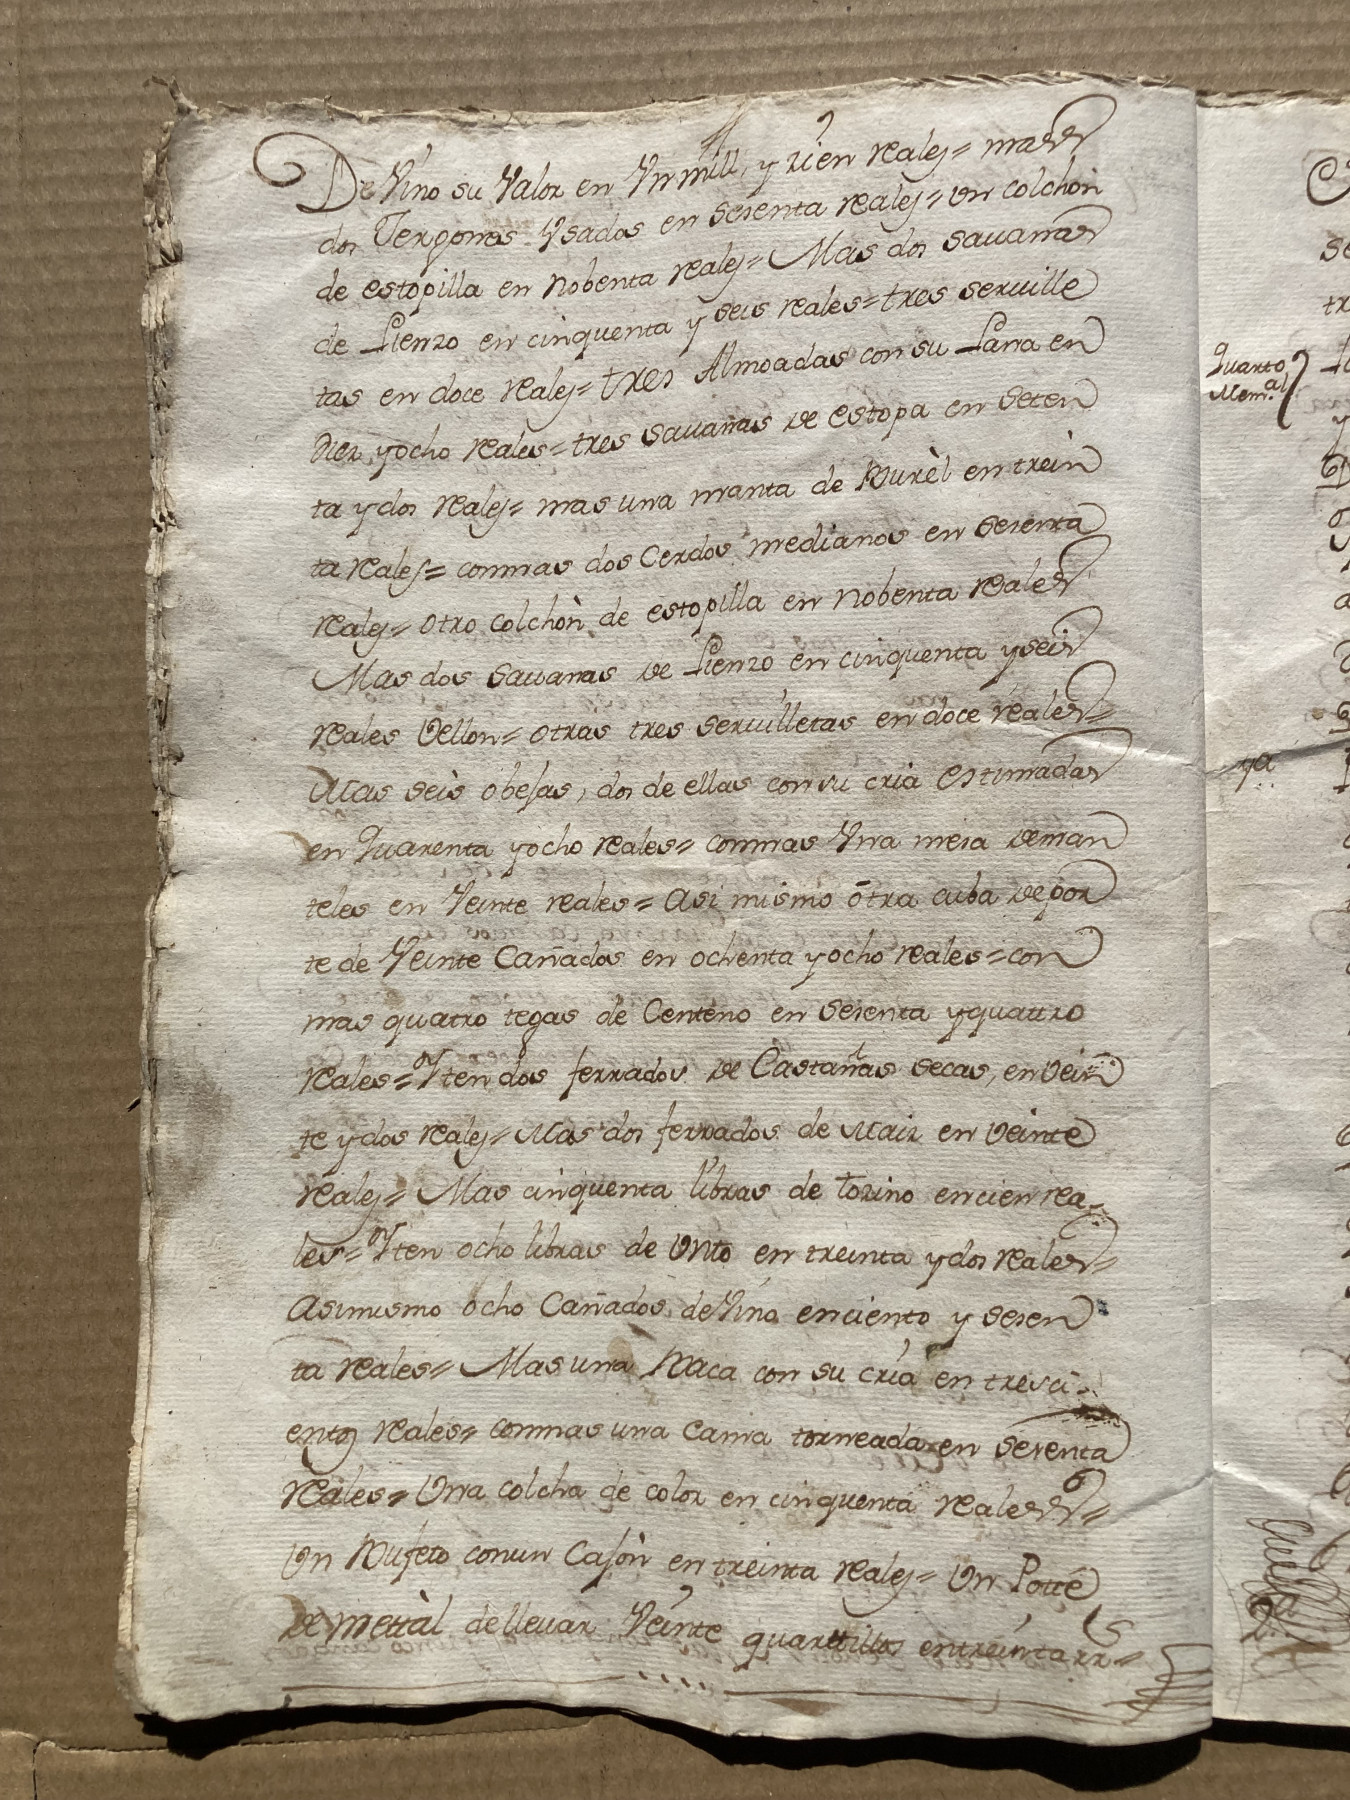 De Vino su Valor en Vn mill, y zien reales= mas
dos Jergones Vsados en sesenta reales= un colchon
de estopilla en nobenta reales= Mas dos sauanas
de Lienzo en cinquenta y seis reales= tres seruille
tas en doce reales= tres Almoadas con su Lana en
diez y ocho reales= tres sauanas de estopa en seten
ta y dos reales= mas una manta de Burèl en trein
ta reales= conmas dos Cerdos medianos en sesenta
reales= otro colchòn de estopilla en nobenta reales
Mas dos sauanas de Lienzo en cinquenta y seis
reales Vellon= otras tres seruilletas en doce reales=
Mas seis obejas, dos de ellas con su cria estimadas
en quarenta y ocho reales= conmas Vna mesa de man
teles en Veinte reales= Asi mismo otra cuba de por
te de Veinte Cañados en ochenta y ocho reales= con
mas quatro tegas de Centeno en sesenta y quattro
reales= Yten dos ferrados de Castañas secas, en Vein
te y dos reales= Mas dos ferrados de Maiz en Veinte
reales= Mas cinquenta libras de tozino en cien rea-
les= Yten ocho libras de Vnto en treinta y dos reales=
Asimismo ocho Cañados de Vino en ciento y sesen
ta reales= Mas una Baca con su cria en tresci
entos reales= conmas una cama torneada en sesenta
reales= Vna colcha de color en cinquenta reales=
Un Bufeto con un Cajòn en treinta reales= Un Potte
de mettàl de lleuar Veinte quarttillos en treinta rr=
Quarto
Mem.al
ya